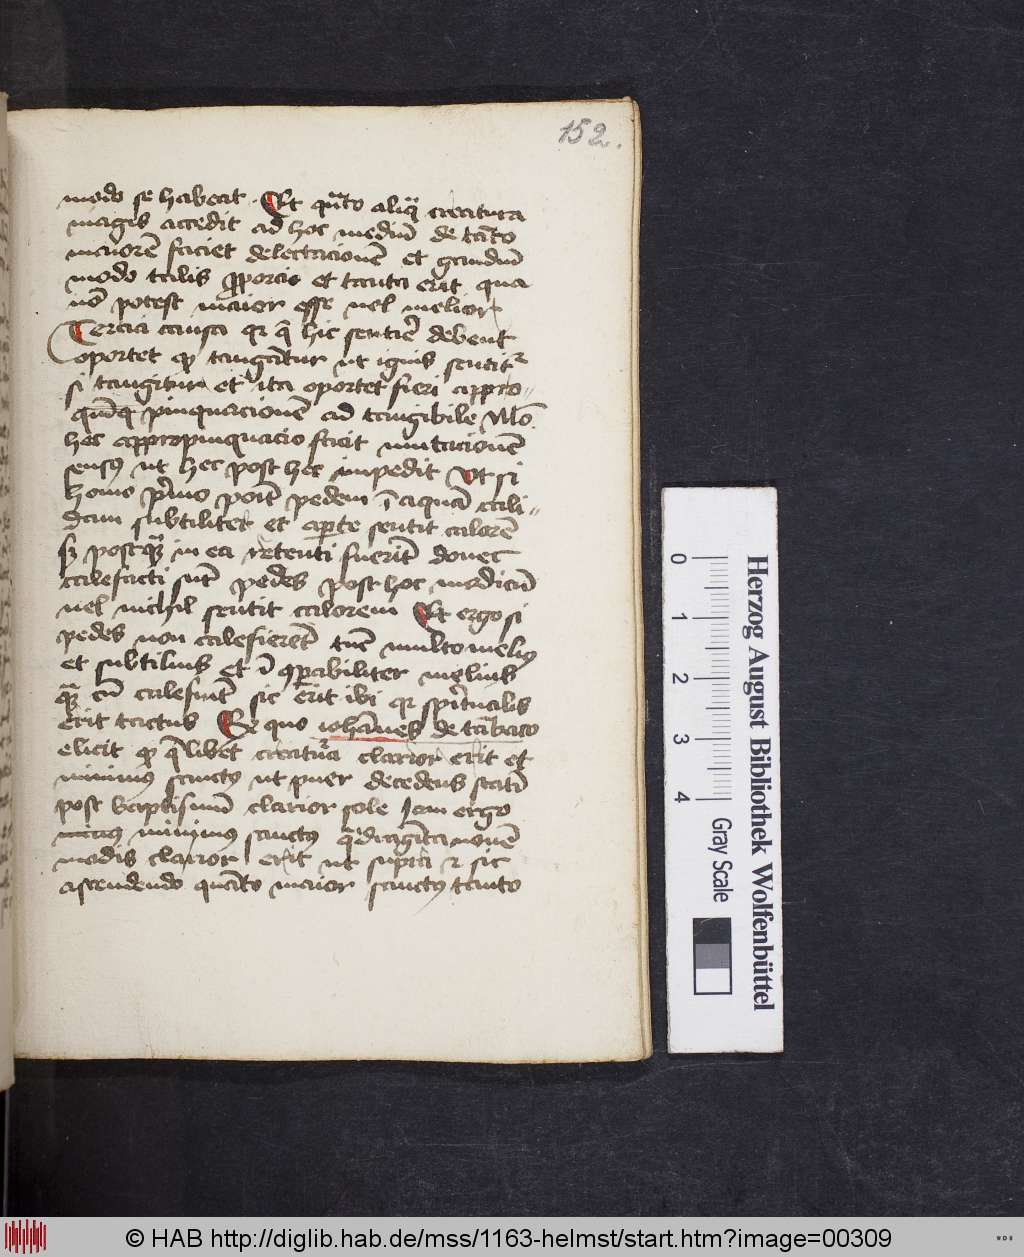 152.
modo se habeat Et qᷓto aliqͣ creatura
magis accedit ad hoc mediū de tāto
maiorē faciet delectacionē et gaudiū
modo talis ꝓporcio et tanta erit qua
nō potest maior esse vel melior
Tercia causa qr q̄ hic sentirē debent
oportet qꝫ tangātur ut ignis sentitᷣ
si tangitur et ita oportet fieri appro-
pinquacionē ad tangibile Mō
hec appropinquacio facit mutacionē
sensꝰ ut hec post hec impedit Vt si
homo pͥmo poīt pedem ī aquā cali-
dam subtiliter et aꝑte sentit calorē
sꝫ postqᷓꝫ in ea retenti fuerīt donec
calefacti sūt pedes post hoc modicū
vel nichil sentit calorem Et ergo si
pedes non calefierēt tūc multo meliꝰ
et subtilius et ī ꝯꝑabiliter melius
qᷓꝫ cū calefiūt sic erit ibi qr spūalis
erit tactus Ex quo iohānes de tābaco
elicit qꝫ q̄libet creatura clarior erit et
minimꝰ sanctꝰ ut puer decedens statī
post baptismū clarior sole Iam ergo
minimꝰ sanctꝰ qᷓdragīta novē
modis clarior erit ut supra et sic
ascendendo quāto maior sanctꝰ tanto
0
1
2
3
4
Gray Scale
Herzog August Bibliothek Wolfenbüttel
© HAB http://diglib.hab.de/mss/1163-helmst/start.htm?image=00309